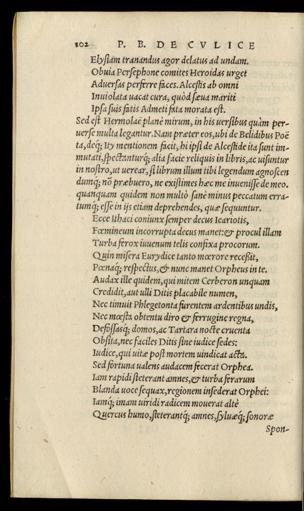 102 P. B. DE CVLICE
Elysiam tranandus agor delatus ad undam.
Obuia Persephone comites Heroidas urget
Aduersas perferre faces. Alcestis ab omni
Inuiolata uacat cura, quòd sæua mariti
Ipsa suis fatis Admeti fata morata est.
Sed est Hermolaë planè mirum, in his uersibus quàm per-
uerse multa legantur. Nam præter eos, ubi de Belidibus Poë
ta, deq; Ity mentionem facit, hi ipsi de Alcestide ita sunt im
mutati, spectanturq; alia facie reliquis in libris, ac uisuntur
in nostro, ut uerear, si librum illum tibi legendum agnoscen
dumq; nō præbuero, ne existimes hæc me inuenisse de meo.
quanquam quidem non multo sanè minus peccatum erra-
tumq; esse in ijs etiam deprehendes, quæ sequuntur.
Ecce Ithaci coniunx semper decus Icariotis,
Fœmineum incorrupta decus manet: & procul illam
Turba ferox iuuenum telis confixa procorum.
Quin misera Eurydice tanto mœrore recessit,
Pœnaq; respectus, & nunc manet Orpheus in te.
Audax ille quidem, qui mitem Cerberon unquam
Credidit, aut ulli Ditis placabile numen,
Nec timuit Phlegetonta furentem ardentibus undis,
Nec mœsta obtentu diro & ferrugine regna,
Defossasq; domos, ac Tartara nocte cruenta
Obsita, nec faciles Ditis sine iudice sedes:
Iudice, qui uitæ post mortem uindicat acta.
Sed fortuna ualens audacem fecerat Orphea.
Iam rapidi steterant amnes, & turba ferarum
Blanda uoce sequax, regionem insederat Orphei:
Iamq; imam uiridi radicem mouerat altè
Quercus humo, steterantq; amnes, syluæq; sonoræ
Spon-